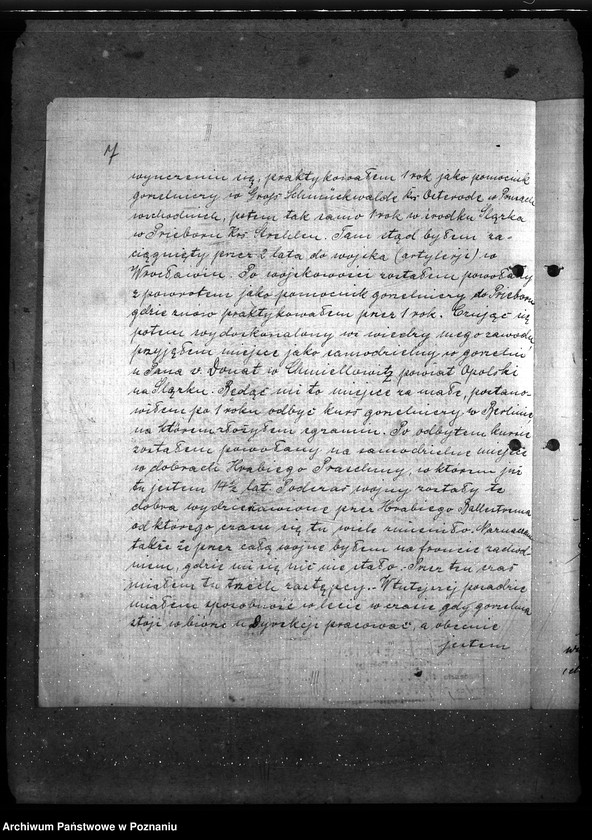 7
wyuczeniu się, praktykowałem 1 rok jako pomocnik
gorzelniczy w Gross Schmückwalde Krs Osterode w Prusach
wschodnich, potem tak samo 1 rok w środku Śląska
w Prieborn Krs Strehlen. Tam stąd byłem za-
ciągnięty przez 2 lata do wojska (artylerji) w
Wrocławiu. Po wojskowości zostałem powołany
z powrotem jako pomocnik gorzelniczy do Prieborn
gdzie znow praktykowałem przez 1 rok. Czując się
potem wydoskonalony wi wiedzy mego zawodu
przyjąłem miejsce jako samodzielny w gorzelni
u Pana v. Donat w Chmiellowitz powiat Opolski
na Śląsku. Będąć mi to miejsce za małe, postano-
wiłem po 1 roku odbyć kurs gorzelniczy w Berlinie,
na którem złożyłem egzamin. Po odbytem kursie
zostałem powołany na samodzielne miejsce
w dobrach Hrabiego Praschmy, w którym już
tu jestem 14½ lat. Podczas wojny zostały te
dobra wydzierzawione przez Hrabiego Ballestrema
od którego czasu się tu wiele zmieniło.
także że przez całą wojne byłem na froncie zachod-
niem, gdzie mi się nic nie stało. Przez ten czas
miałem tu trzech zastępcy. W tutejszej posadzie
miałem sposobność w lecie w czasie gdy gorzelnia
stoji w biórze u Dyrekcji pracować, a obecnie
jestem
Archiwum Państwowe w Poznaniu